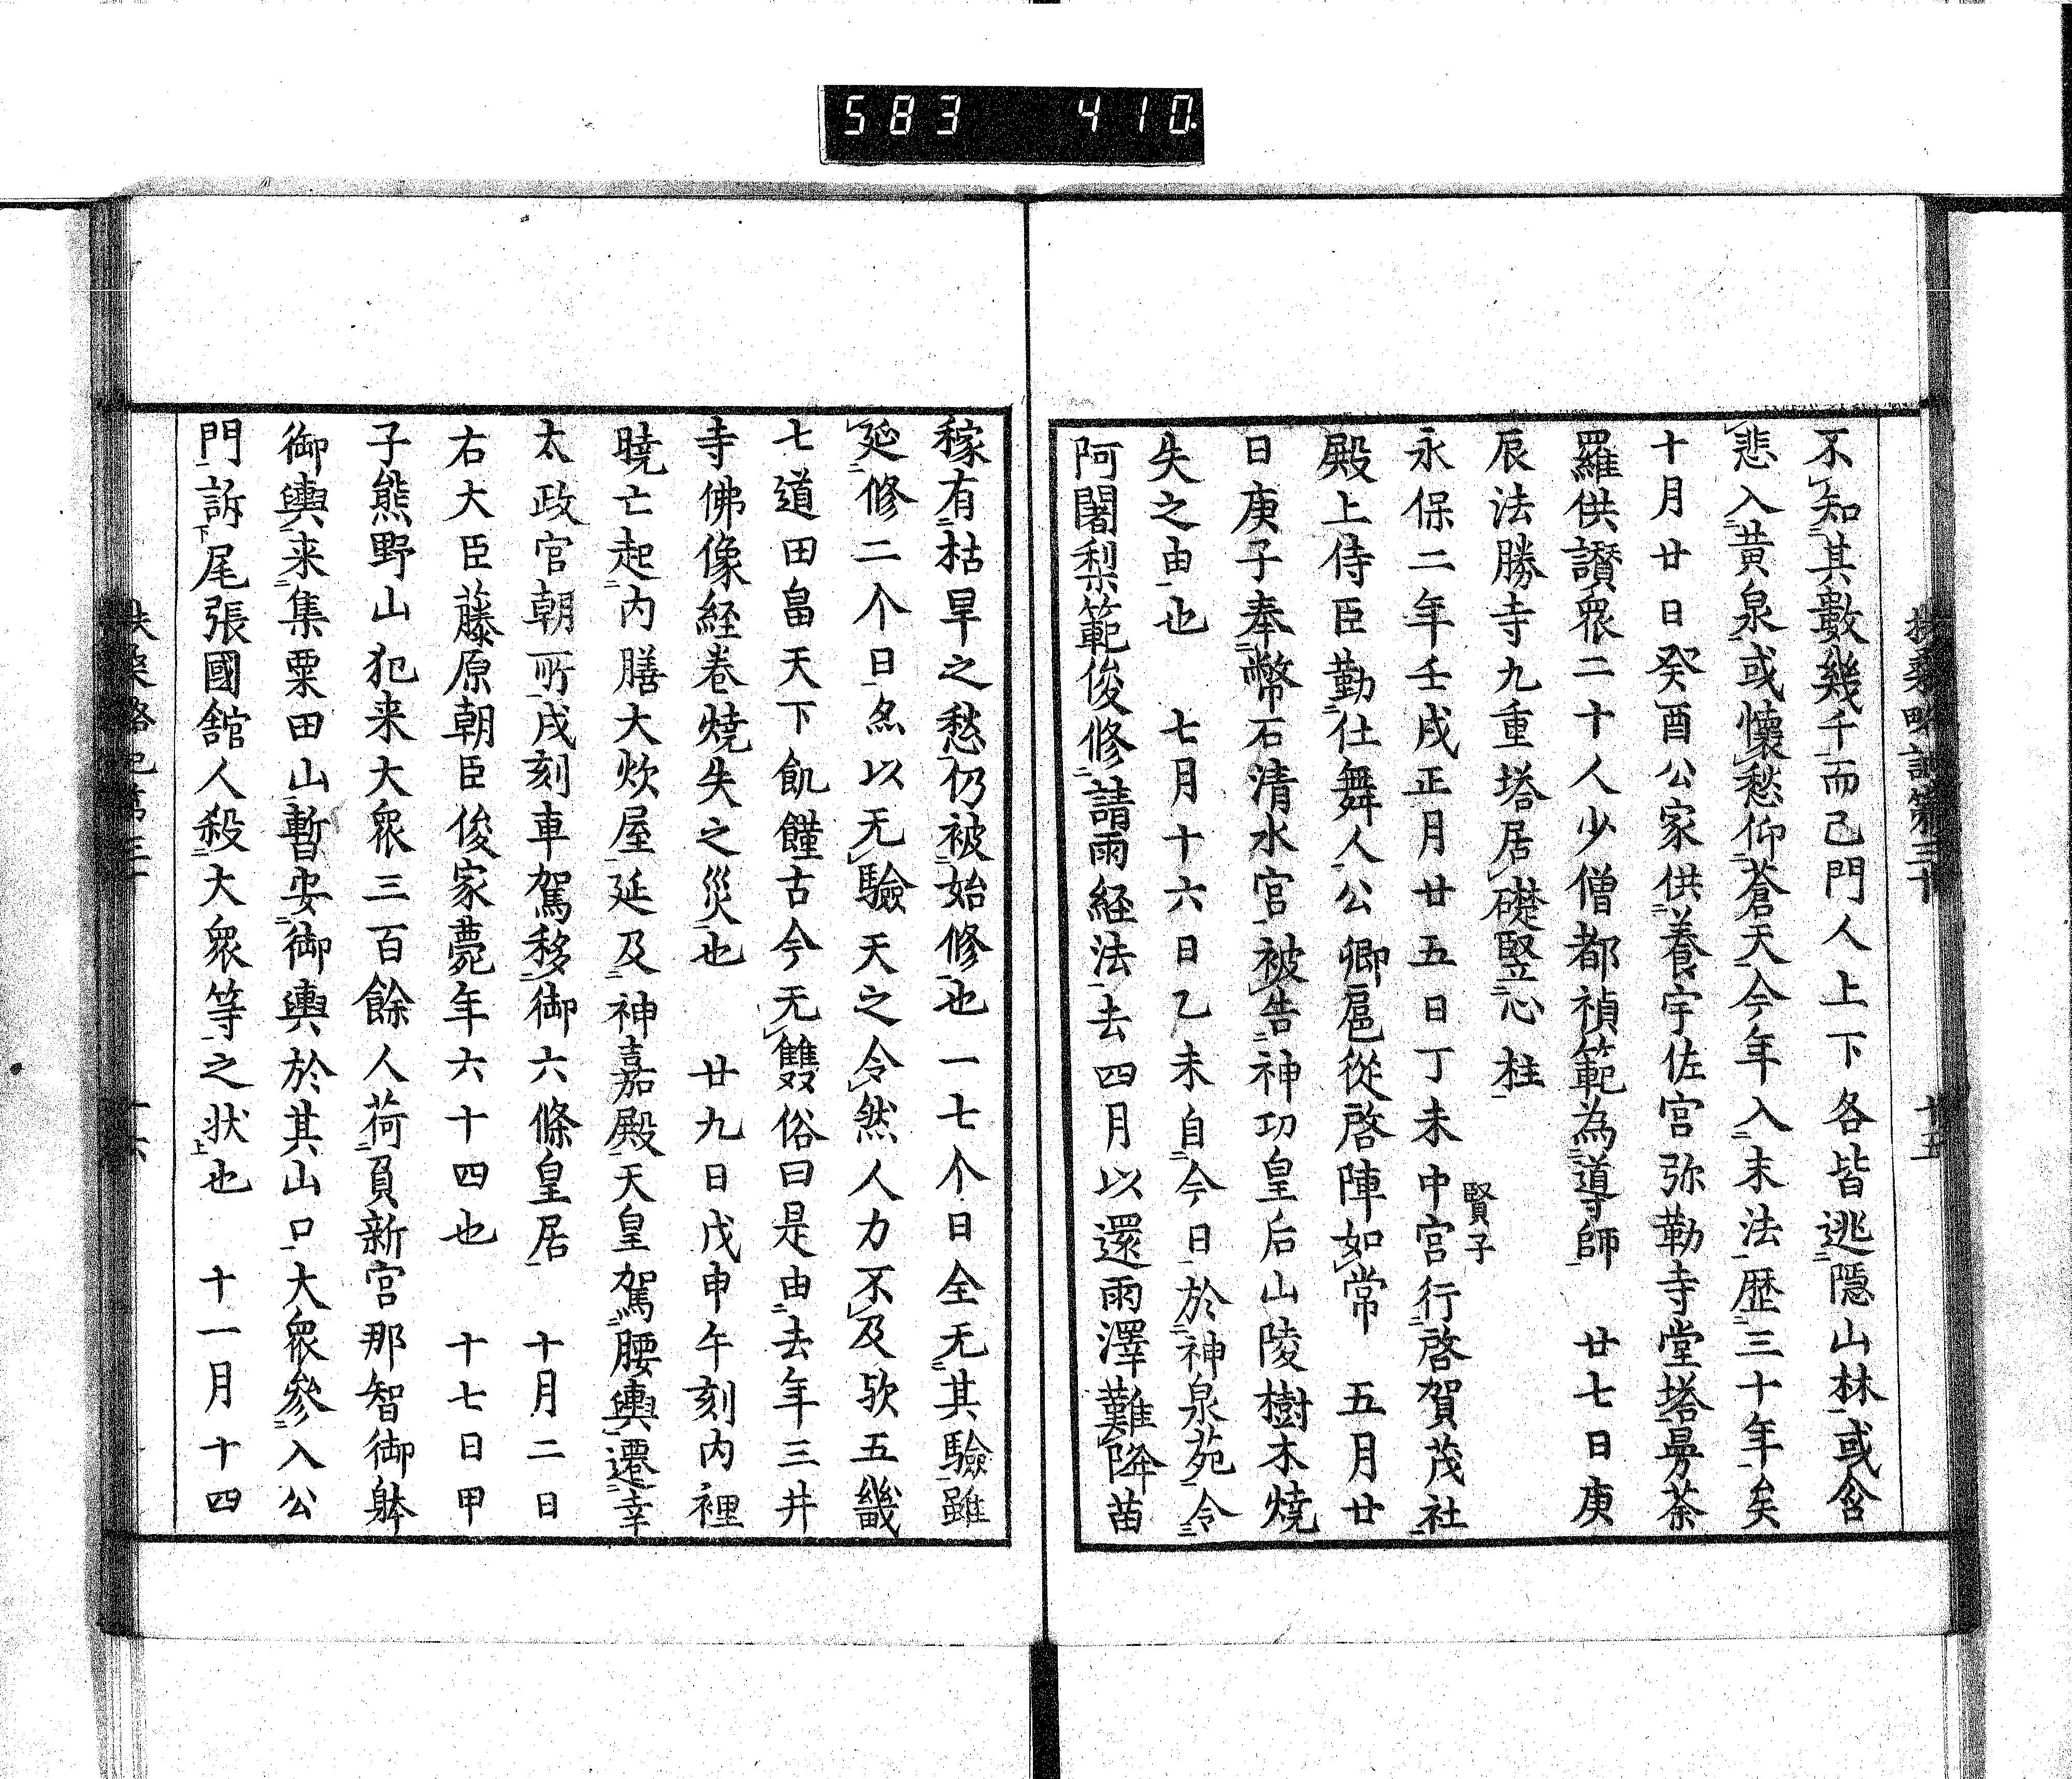 583 410.
扶桑略記第三十 十五
不知其數幾千而已門人上下各皆逃隱山林或含
悲入黃泉或懷愁仰蒼天今年入末法歴三十年矣
十月廿日癸酉公家供養宇佐宮弥勒寺堂塔曼荼
羅供讃衆二十人少僧都禎範為導師 廿七日庚
辰法勝寺九重塔居礎竪心柱
永保二年壬戌正月廿五日丁未中宮賢子行啓賀茂社
殿上侍臣勤仕舞人公卿扈從啓陣如常 五月廿
日庚子奉幣石清水宮被告神功皇后山陵樹木燒
失之由也 七月十六日乙未自今日於神泉苑令
阿闍梨範俊修請雨経法去四月以還雨澤難降苗
稼有枯旱之愁仍被始修也一七个日全无其驗雖
延修二个日尓以无驗天之令然人力不及欤五畿
七道田畠天下飢饉古今无雙俗曰是由去年三井
寺佛像経巻燒失之災也 廿九日戊申午刻内裡
暁亡起内膳大炊屋延及神嘉殿天皇駕腰輿遷幸
太政官朝所戌刻車駕移御六條皇居 十月二日
右大臣藤原朝臣俊家薨年六十四也 十七日甲
子熊野山犯来大衆三百餘人荷負新宮那智御躰
御輿来集粟田山暫安御輿於其山口大衆參入公
門訴尾張國舘人殺大衆等之状也 十一月十四
扶桑略記第三十 十六